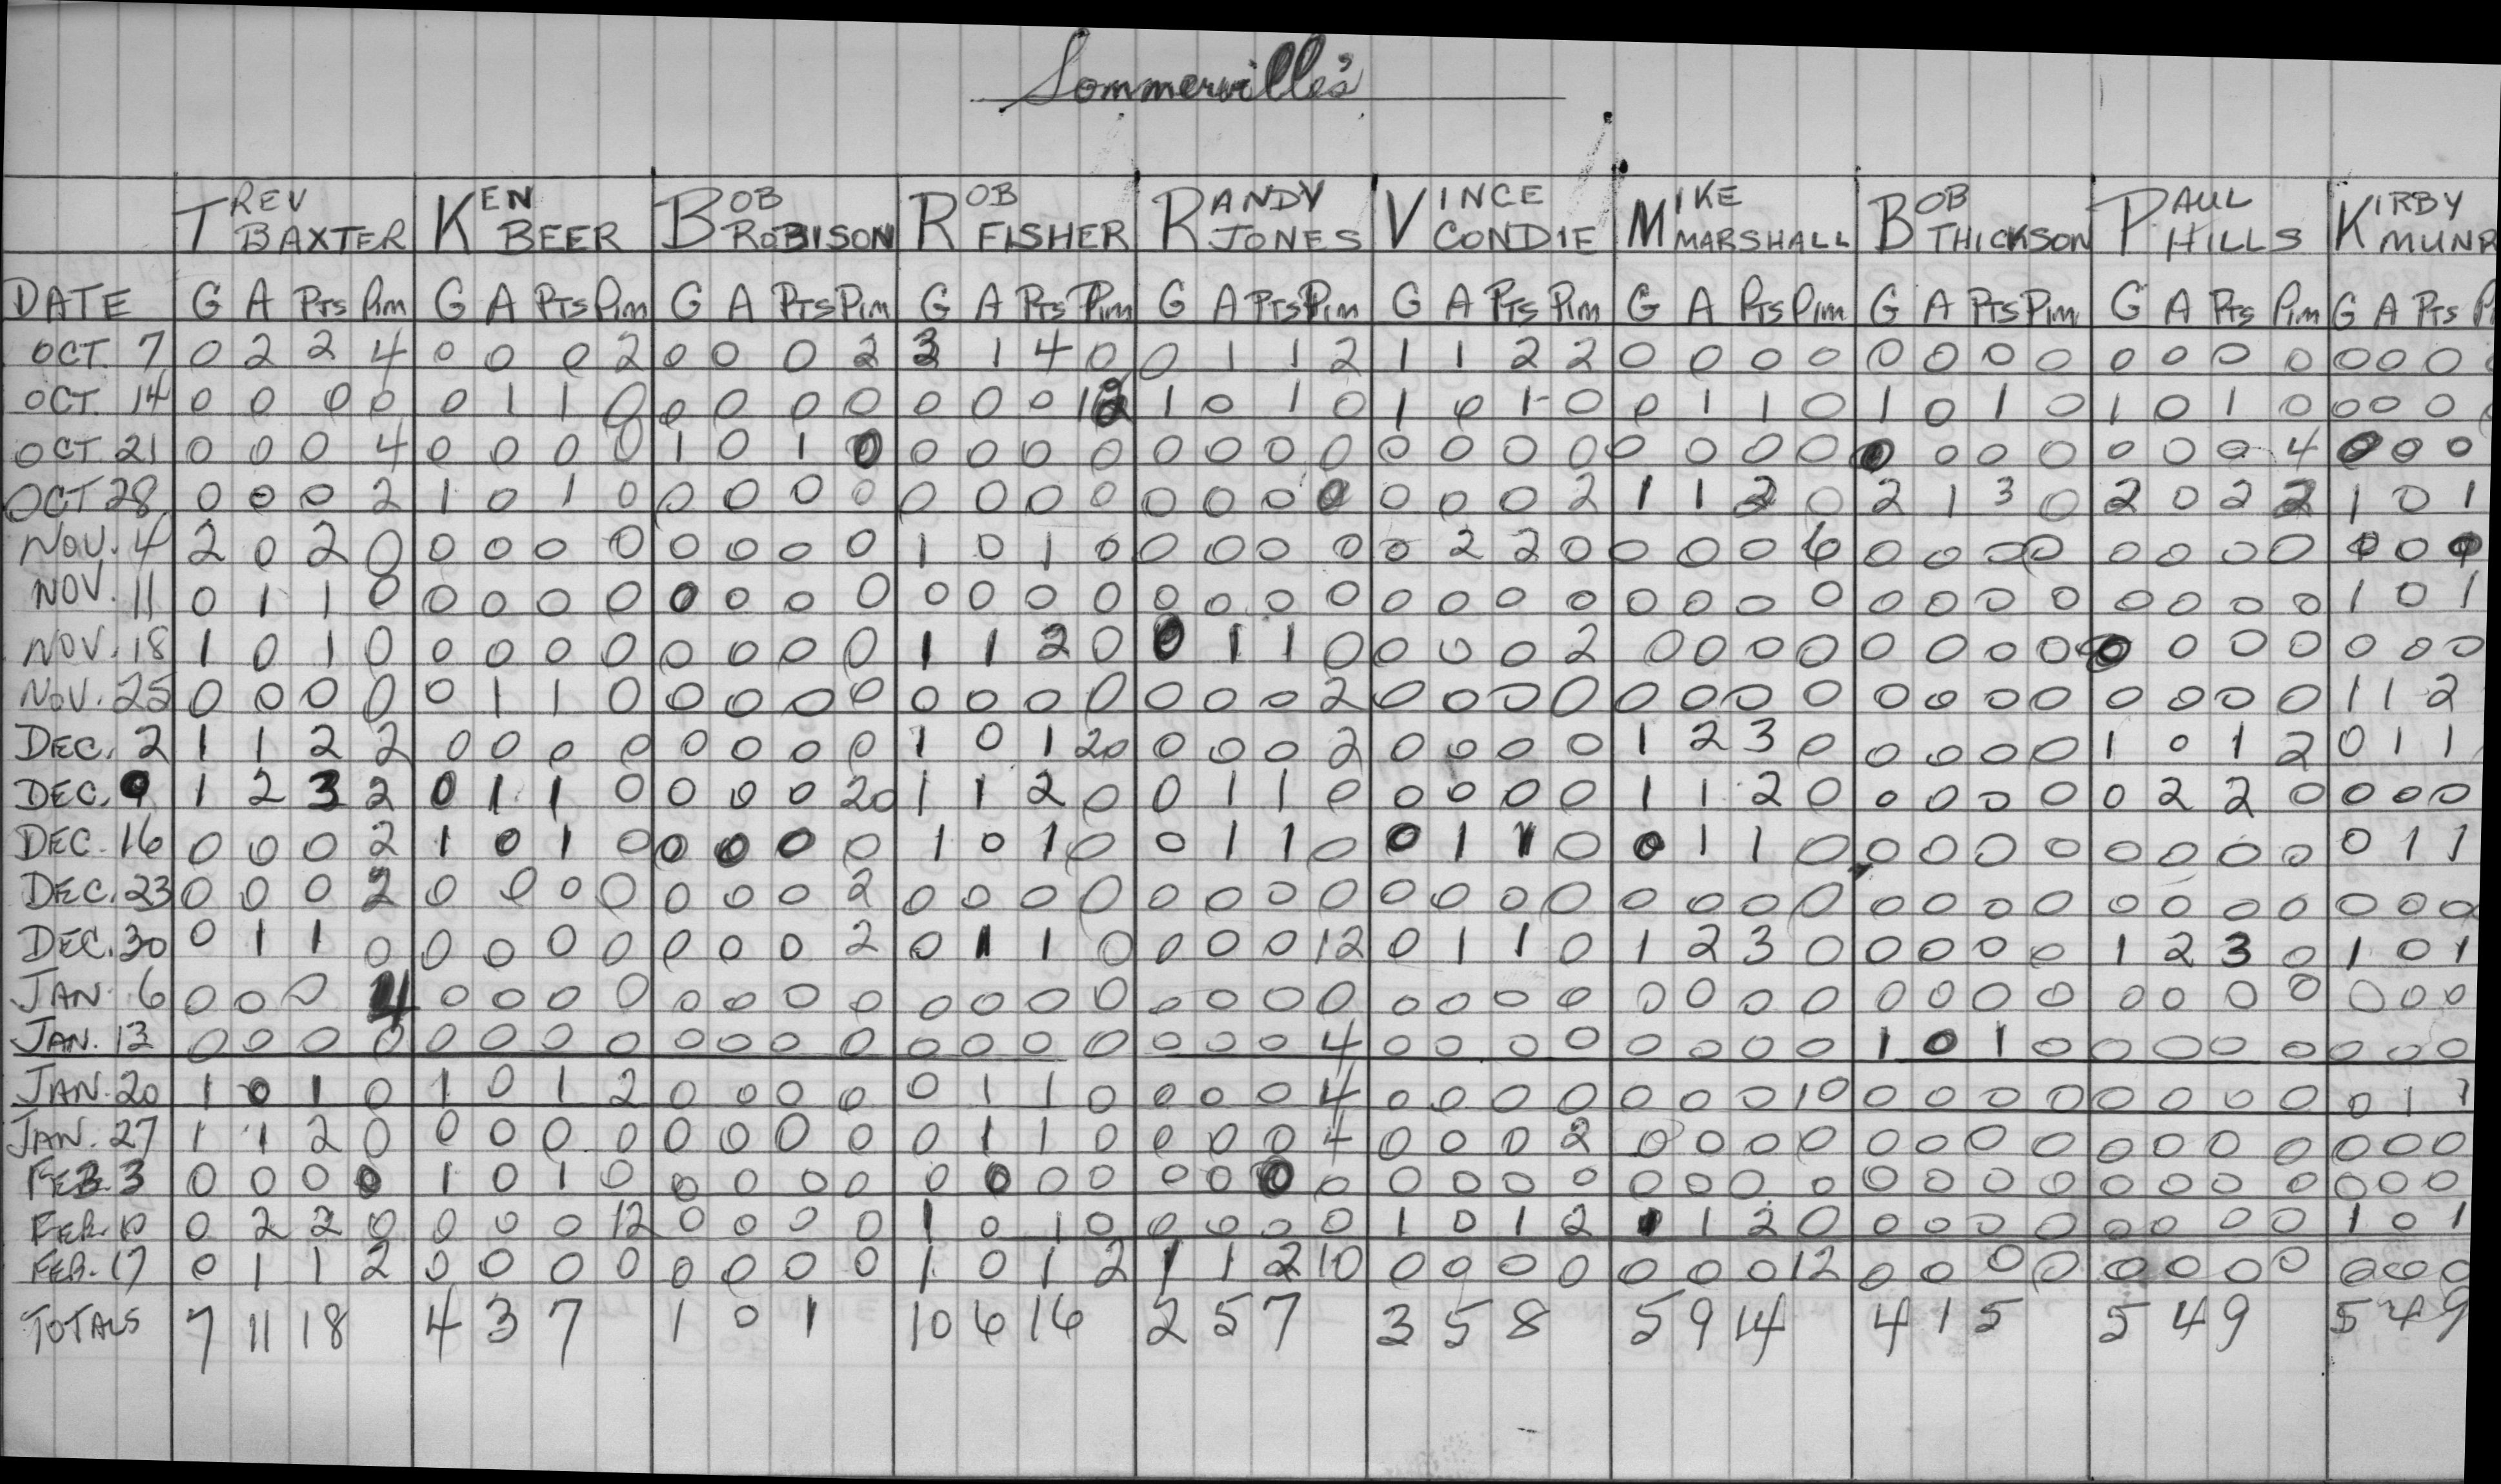 Sommerville's
TREV BAXTER KEN BEER BOB ROBISON ROB FISHER RANDY JONES VINCE CONDIE MIKE MARSHALL BOB THICKSON PAUL HILLS KIRBY MUNR
DATE G A Pts Pim G A Pts Pim G A Pts Pim G A Pts Pim G A Pts Pim G A Pts Pim G A Pts Pim G A Pts Pim G A Pts Pim G A Pts P
OCT. 7 0 2 2 4 0 0 0 2 0 0 0 2 3 1 4 0 0 1 1 2 1 1 2 2 0 0 0 0 0 0 0 0 0 0 0 0 0 0 0
OCT. 14 0 0 0 0 0 1 1 0 0 0 0 0 0 0 0 12 1 0 1 0 1 0 1 0 0 1 1 0 1 0 1 0 1 0 1 0 0 0 0
OCT. 21 0 0 0 4 0 0 0 0 1 0 1 0 0 0 0 0 0 0 0 0 0 0 0 0 0 0 0 0 0 0 0 0 0 0 0 4 0 0 0
OCT 28 0 0 0 2 1 0 1 0 0 0 0 0 0 0 0 0 0 0 0 0 0 0 0 2 1 1 2 0 2 1 3 0 2 0 2 2 1 0 1
NOV. 4 2 0 2 0 0 0 0 0 0 0 0 0 1 0 1 0 0 0 0 0 0 2 2 0 0 0 0 6 0 0 0 0 0 0 0 0 0 0 0
NOV. 11 0 1 1 0 0 0 0 0 0 0 0 0 0 0 0 0 0 0 0 0 0 0 0 0 0 0 0 0 0 0 0 0 0 0 0 0 1 0 1
NOV. 18 1 0 1 0 0 0 0 0 0 0 0 0 1 1 2 0 0 1 1 0 0 0 0 2 0 0 0 0 0 0 0 0 0 0 0 0 0 0 0
NOV. 25 0 0 0 0 0 1 1 0 0 0 0 0 0 0 0 0 0 0 0 2 0 0 0 0 0 0 0 0 0 0 0 0 0 0 0 0 1 1 2
DEC. 2 1 1 2 2 0 0 0 0 0 0 0 0 1 0 1 20 0 0 0 2 0 0 0 0 1 2 3 0 0 0 0 0 1 0 1 2 0 1 1
DEC. 9 1 2 3 2 0 1 1 0 0 0 0 20 1 1 2 0 0 1 1 0 0 0 0 0 1 1 2 0 0 0 0 0 0 2 2 0 0 0 0
DEC. 16 0 0 0 2 1 0 1 0 0 0 0 0 1 0 1 0 0 1 1 0 0 1 1 0 0 1 1 0 0 0 0 0 0 0 0 0 0 1 1
DEC. 23 0 0 0 2 0 0 0 0 0 0 0 2 0 0 0 0 0 0 0 0 0 0 0 0 0 0 0 0 0 0 0 0 0 0 0 0 0 0 0
DEC. 30 0 1 1 0 0 0 0 0 0 0 0 2 0 1 1 0 0 0 0 12 0 1 1 0 1 2 3 0 0 0 0 0 1 2 3 0 1 0 1
JAN. 6 0 0 0 4 0 0 0 0 0 0 0 0 0 0 0 0 0 0 0 0 0 0 0 0 0 0 0 0 0 0 0 0 0 0 0 0 0 0 0
JAN. 13 0 0 0 0 0 0 0 0 0 0 0 0 0 0 0 0 0 0 0 4 0 0 0 0 0 0 0 0 1 0 1 0 0 0 0 0 0 0 0
JAN. 20 1 0 1 0 1 0 1 2 0 0 0 0 0 1 1 0 0 0 0 4 0 0 0 0 0 0 0 10 0 0 0 0 0 0 0 0 0 1 1
JAN. 27 1 1 2 0 0 0 0 0 0 0 0 0 0 1 1 0 0 0 0 4 0 0 0 2 0 0 0 0 0 0 0 0 0 0 0 0 0 0 0
FEB. 3 0 0 0 0 1 0 1 0 0 0 0 0 0 0 0 0 0 0 0 0 0 0 0 0 0 0 0 0 0 0 0 0 0 0 0 0 0 0 0
FEB. 10 0 2 2 0 0 0 0 12 0 0 0 0 1 0 1 0 0 0 0 0 1 0 1 2 1 1 2 0 0 0 0 0 0 0 0 0 1 0 1
FEB. 17 0 1 1 2 0 0 0 0 0 0 0 0 1 0 1 2 1 1 2 10 0 0 0 0 0 0 0 12 0 0 0 0 0 0 0 0 0 0 0
TOTALS 7 11 18 4 3 7 1 0 1 10 6 16 2 5 7 3 5 8 5 9 14 4 1 5 5 4 9 5 4 9